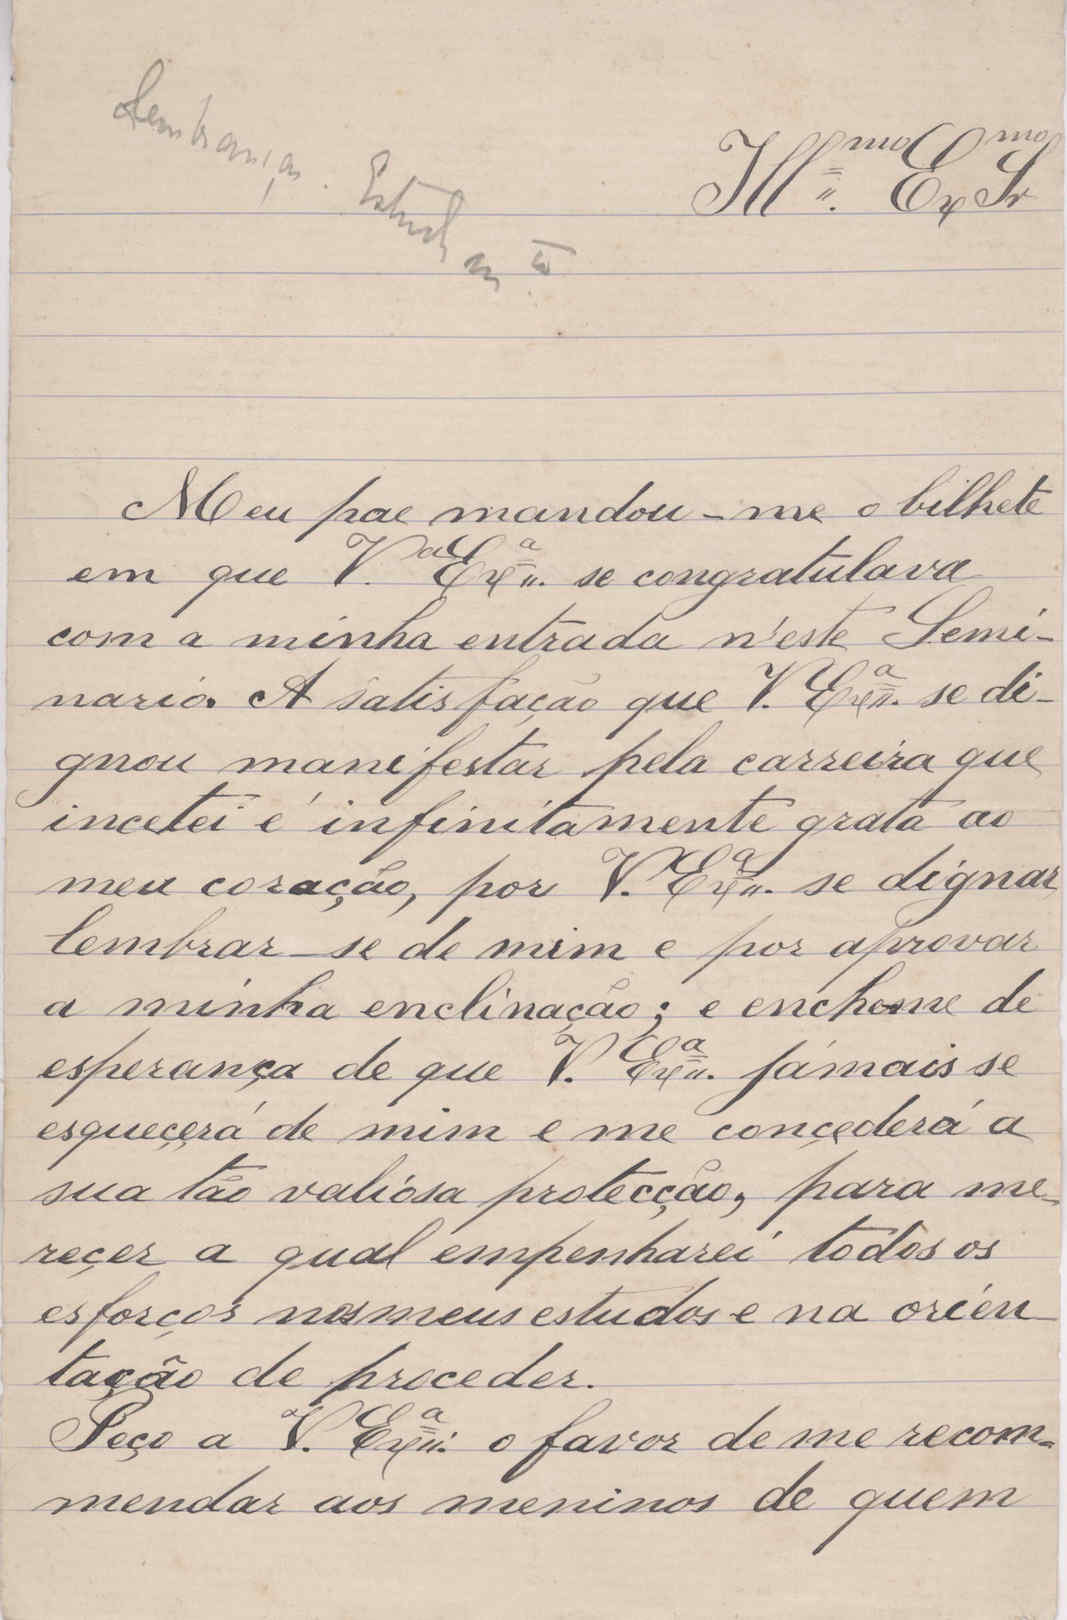 Lembranças. Estudante
Ill.mo Exmo Sr
Meu pae mandou-me o bilhete
em que V. Exª. se congratulava
com a minha entrada n'este Semi-
nario. A satisfação que V. Exª. se di-
gnou manifestar pela carreira que
incetei é infinitamente grata ao
meu coração, por V. Exª. se dignar
lembrar-se de mim e por aprovar
a minha enclinação; e enche-me de
esperança de que V. Exª. jámais se
esqueçerá de mim e me conçederá a
sua tão valiosa protecção, para me-
reçer a qual empenharei todos os
esforços nos meus estudos e na orien-
tação de proceder.
Peço a V. Exª. o favor de me recom-
mendar aos meninos de quem